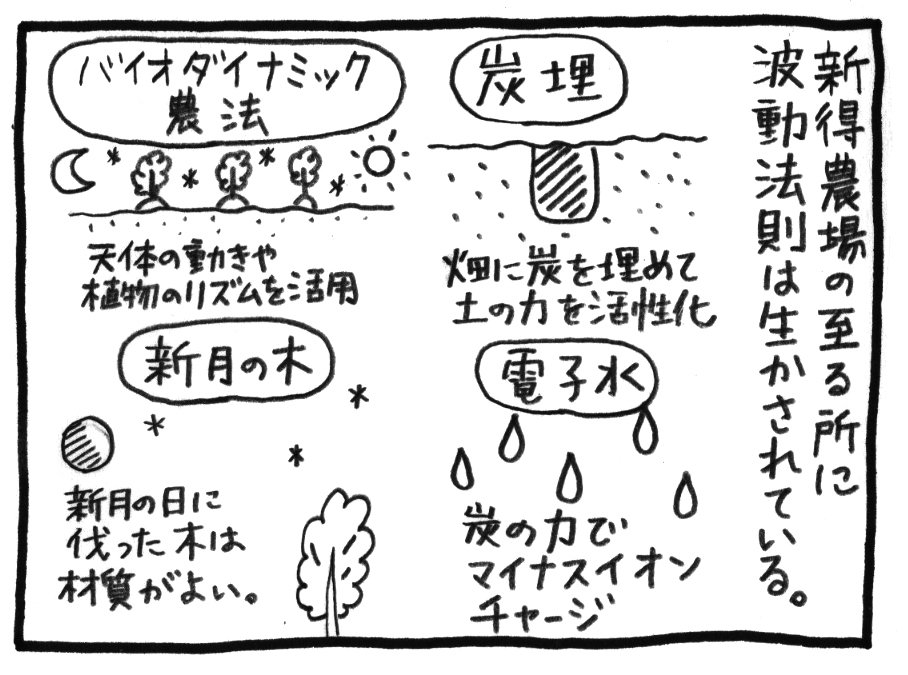 新得農場の至る所に
波動法則は生かされている。
炭埋
畑に炭を埋めて
土の力を活性化
電子水
炭の力で
マイナスイオン
チャージ
バイオダイナミック
農法
天体の動きや
植物のリズムを活用
新月の木
新月の日に
伐った木は
材質がよい。